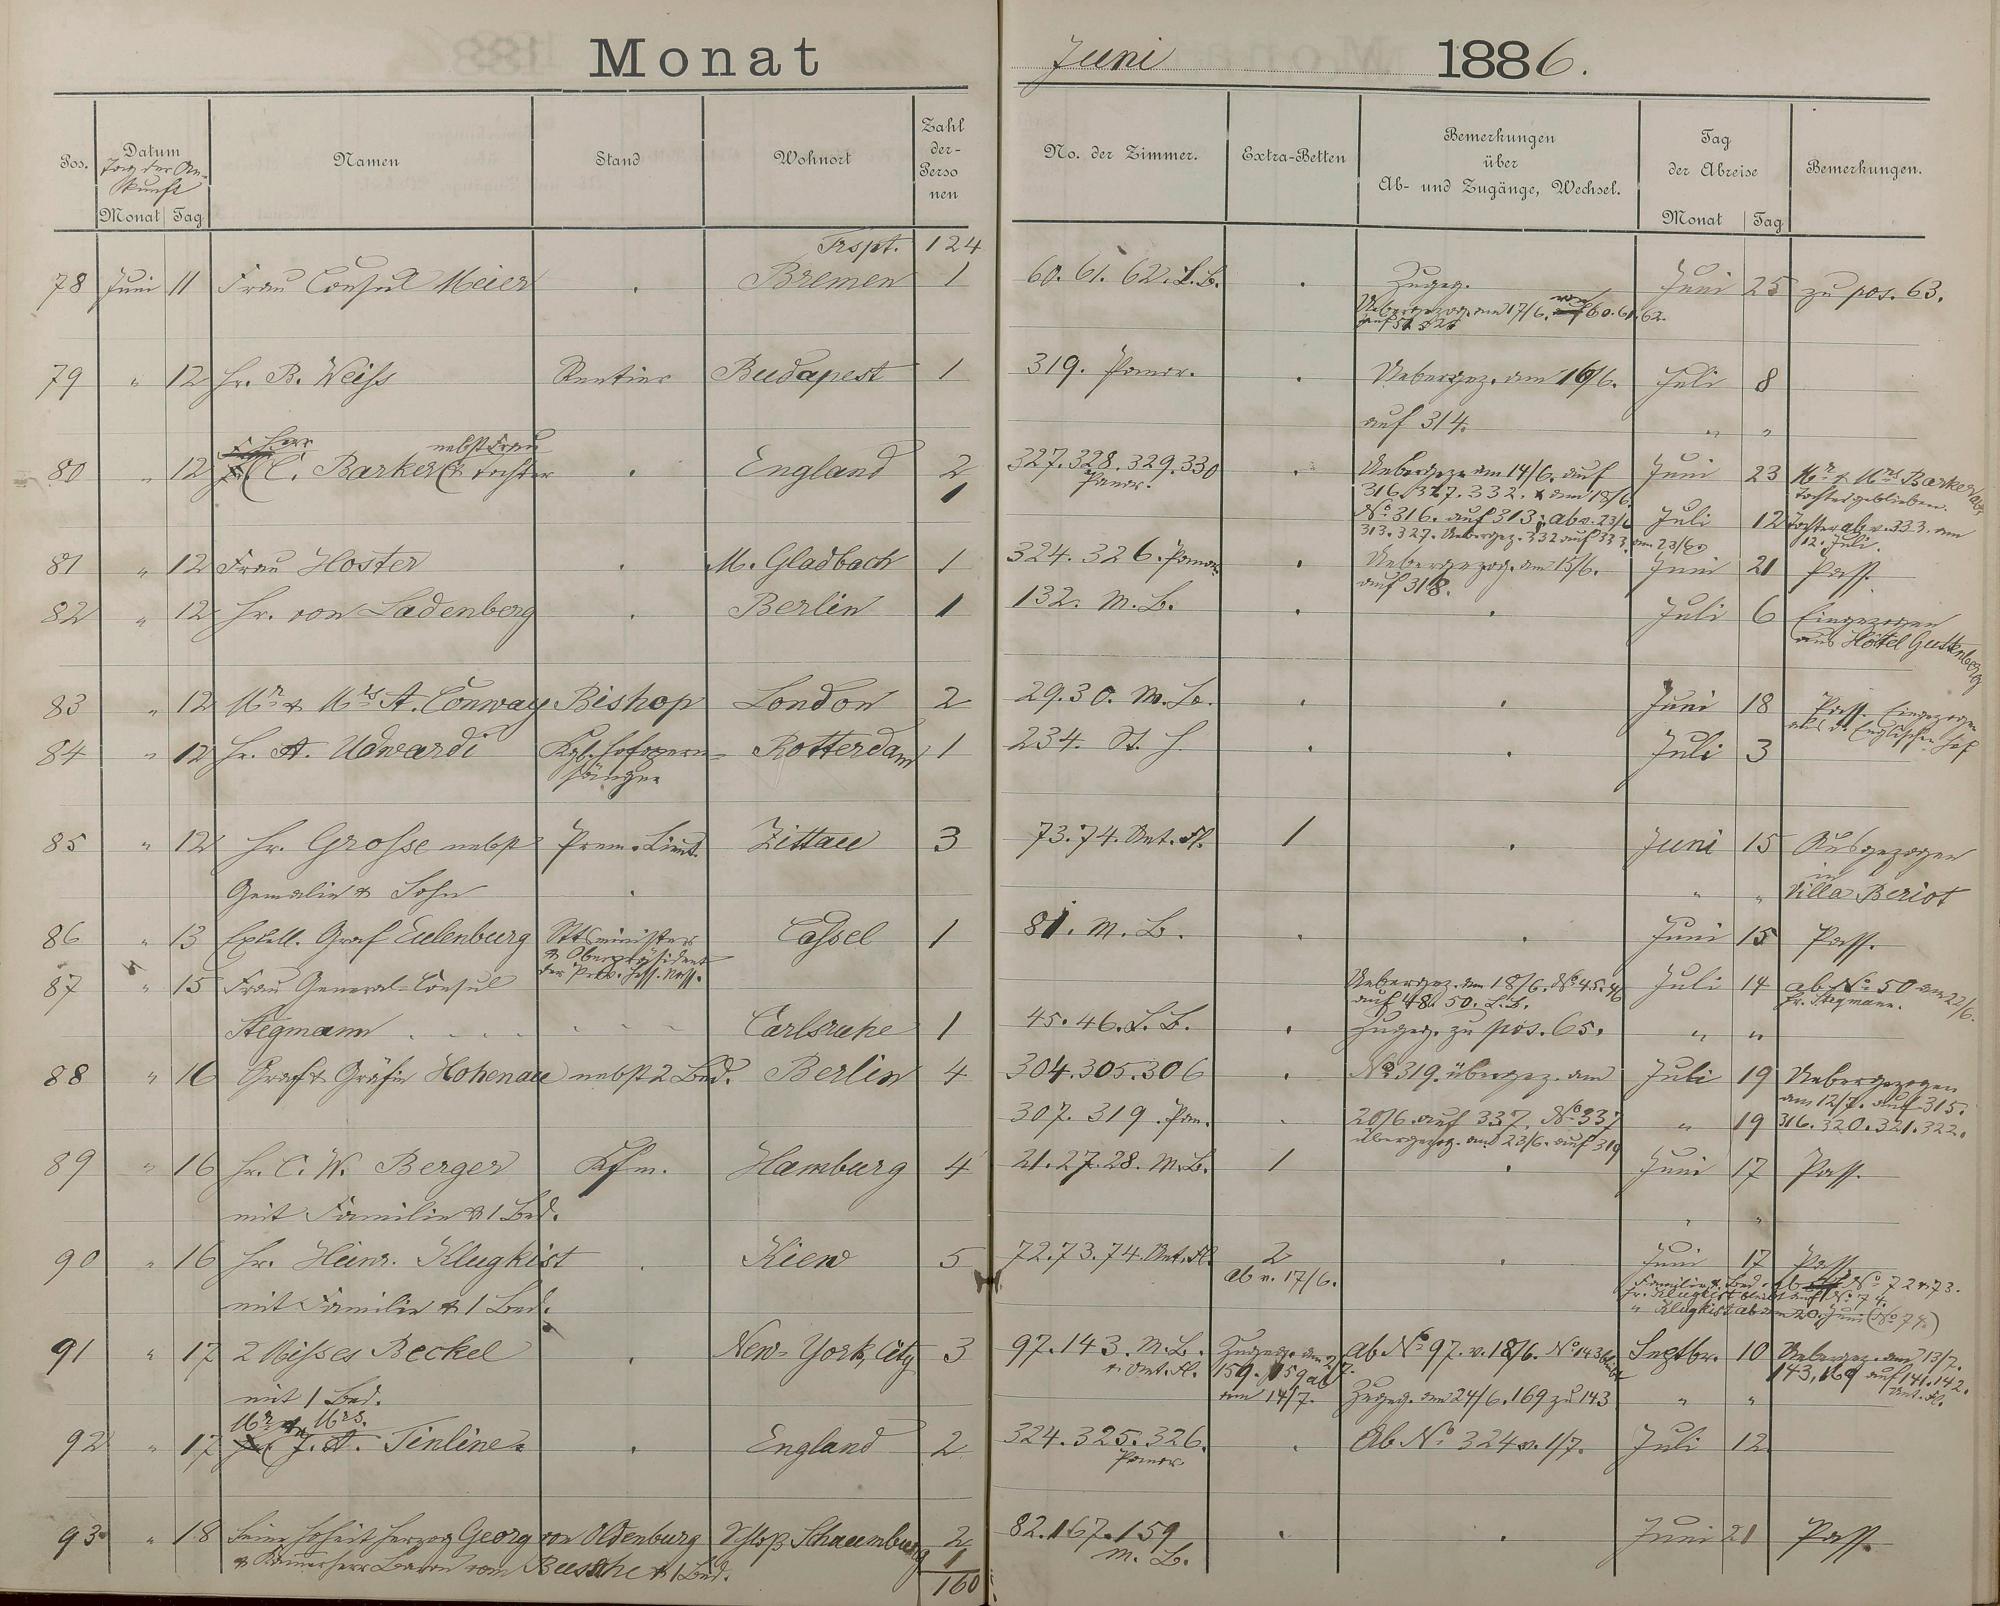 Monat Juni 1886.
Pos. Datum Tag der Ankunft Monat Tag Namen Stand Wohnort Zahl der Personen No. der Zimmer. Extra-Betten Bemerkungen über Ab- und Zugänge, Wechsel. Tag der Abreise Monat Tag Bemerkungen.
Trspt. 124
78 Juni 11 Frau Consul Meier . Bremen 1 60. 61. 62. L.B. . Zugeg. Juni 25 zu pos. 63.
Uebergezog. am 17/6. von 60. 61. 62.
79 " 12 Hr. B. Weiss Rentier Budapest 1 319. Panor. . Uebergez. am 16/6. Juli 8
auf 314. " "
Herr nebst Frau
80 " 12 C. Barker & Tochter . England 2 327. 328. 329. 330 . Uebergez. am 14/6. auf Juni 23 Mr & Mrs Barker ab
1 Panor. 316. 327. 332. & am 18/6. Tochter geblieben.
No. 316. auf 313; ab v. 23/6 Juli 12 Tochter ab v. 333. am
313. 327. Uebergez. 332 auf 333 am 23/6 12. Juli.
81 " 12 Frau Hoster . M. Gladbach 1 324. 326. Panor. . Uebergezog. am 15/6. Juni 21 Pass.
auf 318.
82 " 12 Hr. von Ladenberg . Berlin 1 132. M. B. . . Juli 6 Eingezogen
aus Hôtel Guttenberg
83 " 12 Mr & Mrs A. Conway Bishop London 2 29. 30. M. B. . . Juni 18 Pass. Eingezogen
aus d. Englischen Hof
84 " 12 Hr. A. Udwardi Kgl. Hofopern- Rotterdam 1 234. St. H . . Juli 3
sänger
85 " 12 Hr. Grosse nebst Prem. Lieut. Zittau 3 73. 74. Ant. Fl. 1 . Juni 15 Ausgezogen
Gemalin & Sohn . " " in Villa Beriot
86 " 13 Excell. Graf Eulenburg Sttsminister Cassel 1 81. M. B. . . Juni 15 Pass.
& Oberpräsident
der Prov. Hess. Nass.
87 " 15 Frau General-Consul Uebergez. am 18/6. No. 45. 46 Juli 14 ab No. 50 am 22/6.
auf 48. 50. L.B. Fr. Stegmann.
Stegmann Carlsruhe 1 45. 46. L. B. . Zugeg. zu pos. 65. " "
88 " 16 Graf & Gräfin Hohenau nebst 2 Bed. Berlin 4 304. 305. 306 . No. 319. übergez. am Juli 19 Uebergezogen
am 12/7. auf 315.
307. 319. Pan. . 20/6. auf 337. No. 337 " 19 316. 320. 321. 322.
übergezog. am 23/6. auf 319
89 " 16 Hr. C. W. Berger Kfm. Hamburg 4 21. 27. 28. M. B. 1 . Juni 17 Pass.
mit Familie & 1 Bed. " "
90 " 16 Hr. Heinr. Klugkist . Kiew 5 72. 73. 74. Ant. Fl. 2 . Juni 17 Pass.
ab v. 17/6. Familie & Bed. ab No. 72 & 73.
mit Familie & 1 Bed. Hr. Klugkist bleibt auf No. 74.
" Klugkist ab am 20. Juni (No. 74)
91 " 17 2 Misses Beckel . New-York, City 3 97. 143. M. B. Zugeg. am ab No. 97. v. 18/6. No. 143 bleibt Septbr. 10 Uebergez. am 13/7.
& Ant. Fl. 159. 159 ab 143. 169 auf 141. 142.
mit 1 Bed. am 14/7. Zugeg. am 24/6. 169 zu 143 " " Ant. Fl.
Mr & Mrs.
92 " 17 J. A. Tinline. . England 2 324. 325. 326. . Ab No. 324 v. 1/7. Juli 12
Panor.
93 " 18 Seine Hoheit Herzog Georg von Oldenburg Schloss Schaumburg 2 82. 167. 159 . . Juni 21 Pass.
& Kammerherr Baron vom Bussche & 1 Bed. 1 M. B.
160